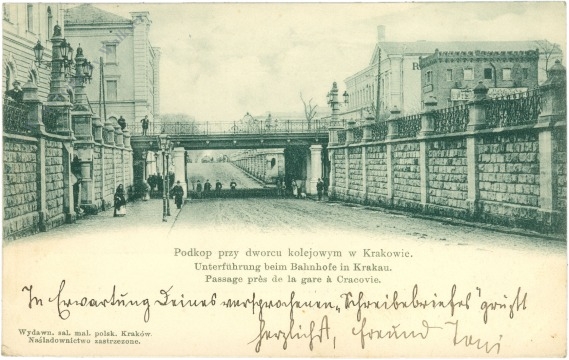 Podkop przy dworcu kolejowym w Krakowie.
Unterführung beim Bahnhofe in Krakau.
Passage près de la gare à Cracovie.
In Erwartung Deines versprochenen „Schreibebriefes" grüßt
herzlichst, Freund Toni
Wydawn. sal. mal. polsk. Kraków.
Naśladownictwo zastrzeżone.